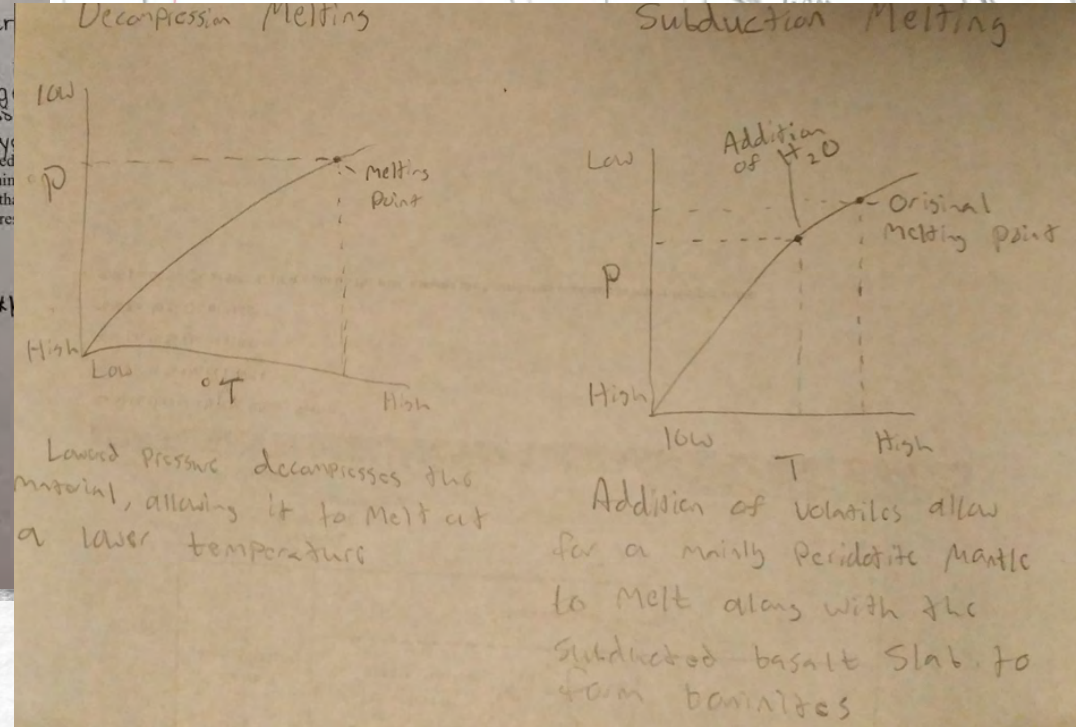 Decompression Melting
low
P
Melting
Point
High
Low
°T
High
Lowered pressure decompresses the
material, allowing it to melt at
a lower temperature
Subduction Melting
Addition
of H2O
Low
Original
Melting point
P
High
low
High
T
Addition of volatiles allow
for a mainly Peridotite Mantle
to Melt along with the
Subducted basalt Slab to
form boninites